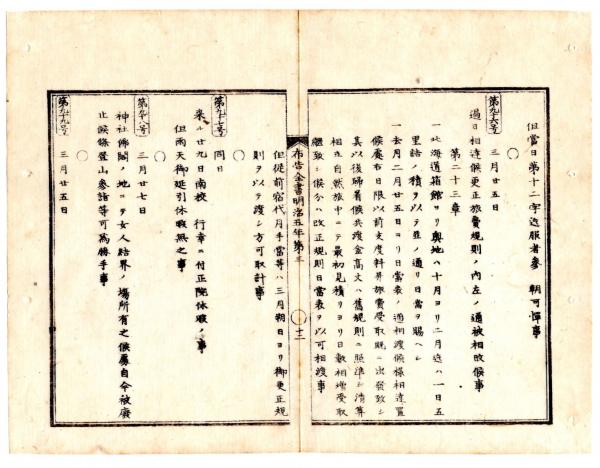 但當日第十二字迄服者參　朝可憚事
第九十六号
三月廿五日
過日相達候更正旅費規則ノ内左ノ通被相改候事
第二十三章
一北海道箱館ヨリ奥地ハ十月ヨリ二月迄ハ一日五
里詰ノ積ヲ以テ並ノ通リ日當ヲ賜ヘシ
一去月二月廿五日ヨリ日當表ノ通相渡候様相達置
候處布日限以前支度料并旅費受取既ニ出發致シ
其以後歸着候共渡金高ハ舊規則ニ照準シ清算
相立自然旅中ニテ最初見積リヨリ日數相増受取
繼致シ候分ハ改正規則日當表ヲ以可相渡事
布告全書明治五年第三
十二
但從前宿代月手當等ハ三月朔日ヨリ御更正規
則ヲ以テ渡シ方可取計事
第九十七号
同日
來ル廿九日南校　行幸ニ付正院休暇ノ事
但雨天御延引休暇無之事
第九十八号
三月廿七日
神社佛閣ノ地ニテ女人結界ノ場所有之候處自今被廢
止候條登山參詣等可爲勝手事
第九十九号
三月廿五日